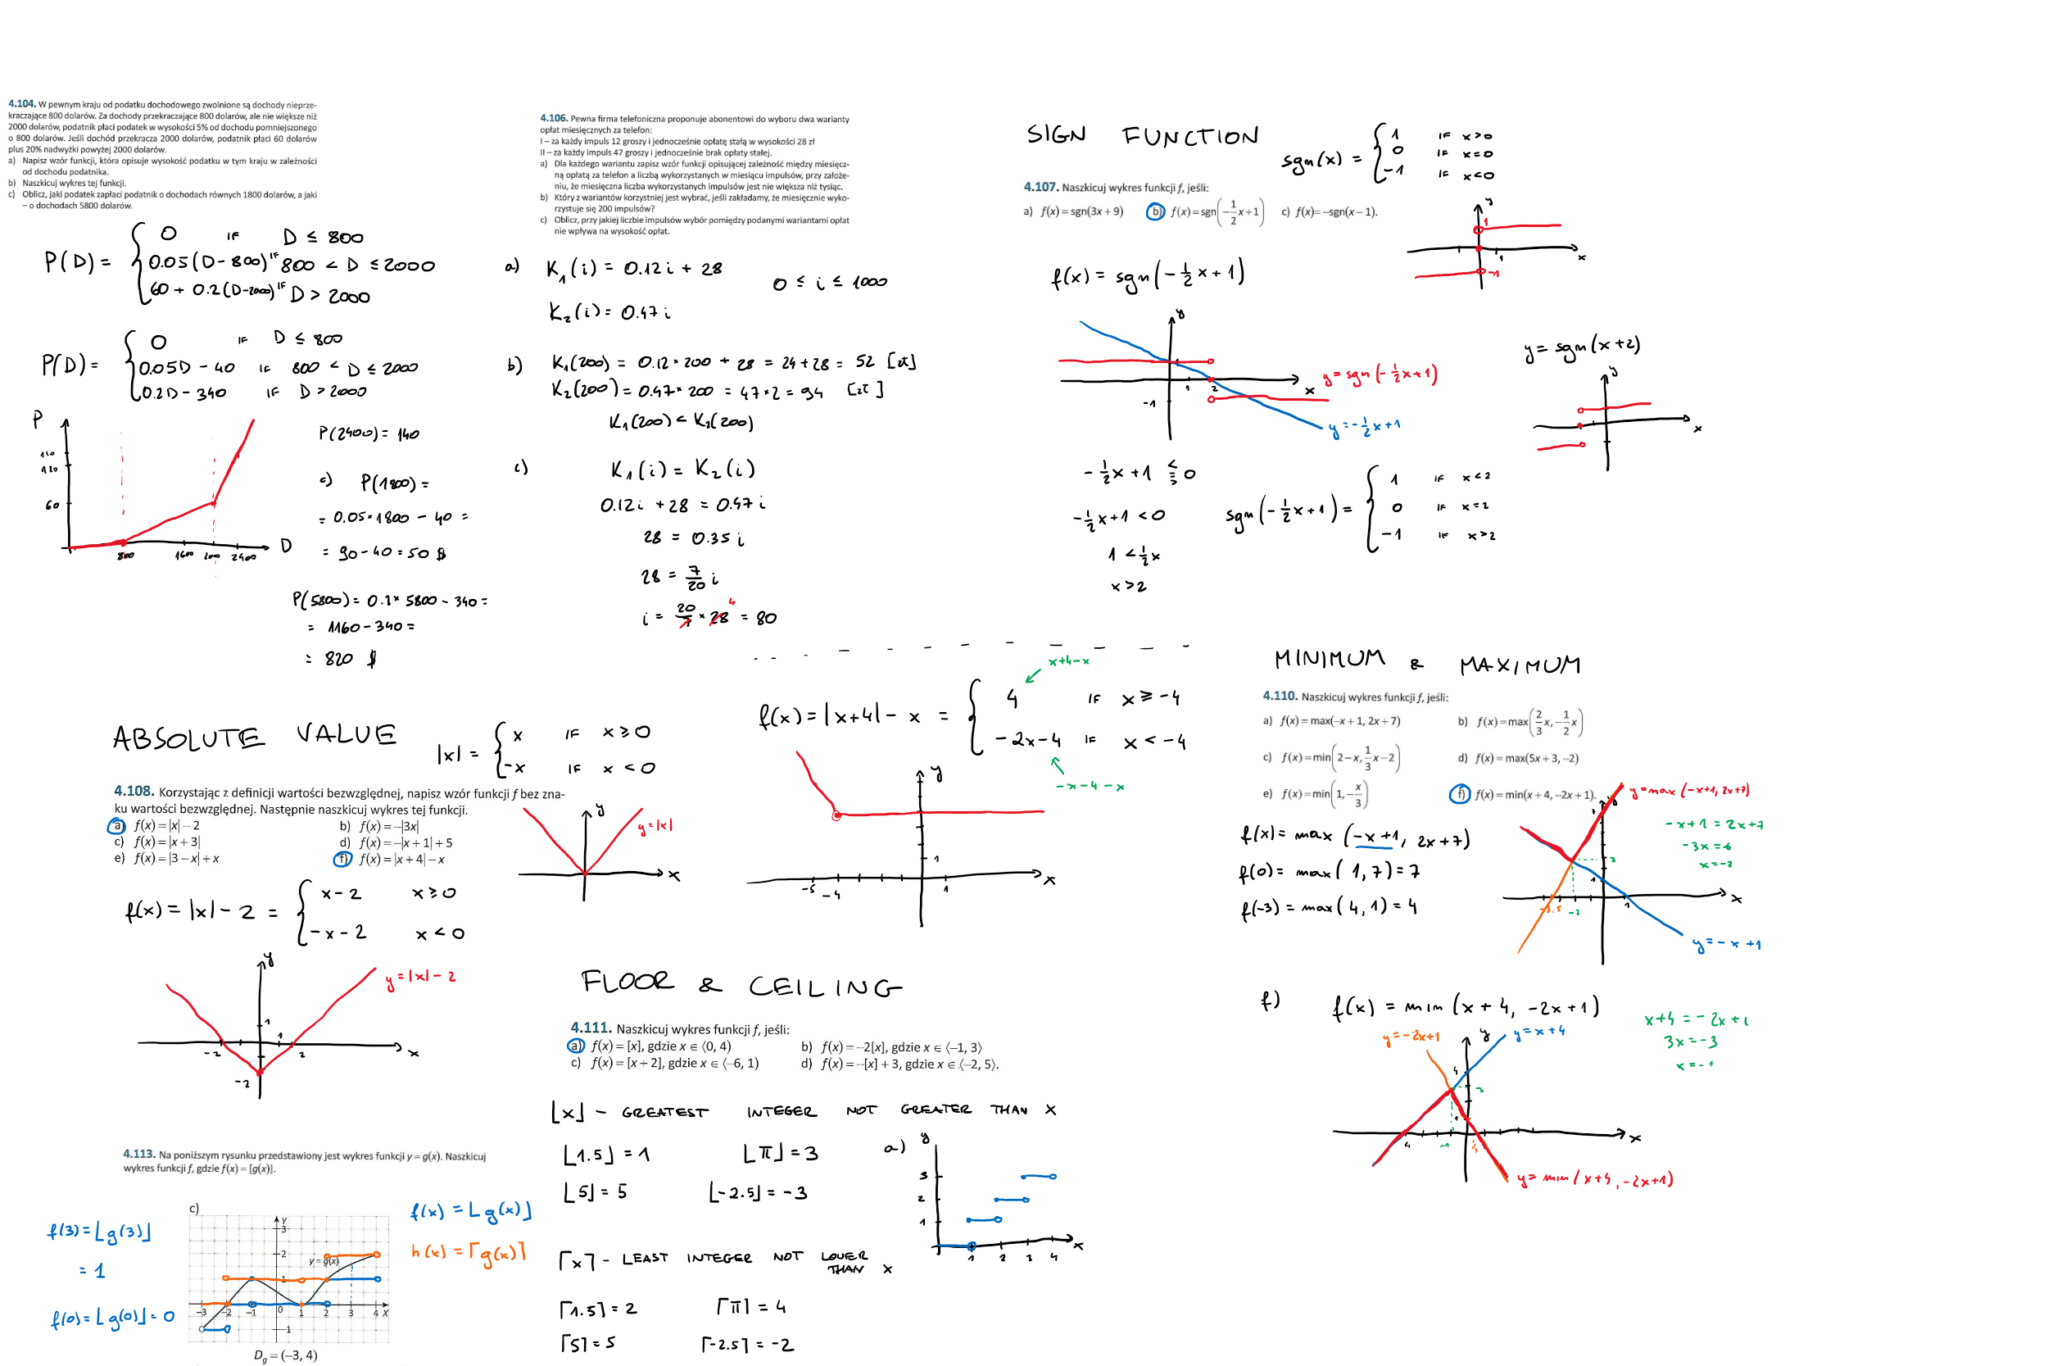 4.104. W pewnym kraju od podatku dochodowego zwolnione są dochody nieprze-
kraczające 800 dolarów. Za dochody przekraczające 800 dolarów, ale nie większe niż
2000 dolarów, podatnik płaci podatek w wysokości 5% od dochodu pomniejszonego
o 800 dolarów. Jeśli dochód przekracza 2000 dolarów, podatnik płaci 60 dolarów
plus 20% nadwyżki powyżej 2000 dolarów.
a) Napisz wzór funkcji, która opisuje wysokość podatku w tym kraju w zależności
od dochodu podatnika.
b) Naszkicuj wykres tej funkcji.
c) Oblicz, jaki podatek zapłaci podatnik o dochodach równych 1800 dolarów, a jaki
– o dochodach 5800 dolarów.
P(D) = { 0 IF D ≤ 800
0.05(D-800) IF 800 < D ≤ 2000
60 + 0.2(D-2000) IF D > 2000
P(D) = { 0 IF D ≤ 800
0.05D - 40 IF 800 < D ≤ 2000
0.2D - 340 IF D > 2000
P
120
60
800 1600 2000 2400 D
P(2400) = 140
c) P(1800) =
= 0.05*1800 - 40 =
= 90 - 40 = 50 $
P(5800) = 0.2* 5800 - 340 =
= 1160 - 340 =
= 820 $
4.106. Pewna firma telefoniczna proponuje abonentowi do wyboru dwa warianty
opłat miesięcznych za telefon:
I – za każdy impuls 12 groszy i jednocześnie opłatę stałą w wysokości 28 zł
II – za każdy impuls 47 groszy i jednocześnie brak opłaty stałej.
a) Dla każdego wariantu zapisz wzór funkcji opisującej zależność między miesięcz-
ną opłatą za telefon a liczbą wykorzystanych w miesiącu impulsów, przy założe-
niu, że miesięczna liczba wykorzystanych impulsów jest nie większa niż tysiąc.
b) Który z wariantów korzystniej jest wybrać, jeśli zakładamy, że miesięcznie wyko-
rzystuje się 200 impulsów?
c) Oblicz, przy jakiej liczbie impulsów wybór pomiędzy podanymi wariantami opłat
nie wpływa na wysokość opłat.
a) K₁(i) = 0.12i + 28
0 ≤ i ≤ 1000
K₂(i) = 0.47i
b) K₁(200) = 0.12 * 200 + 28 = 24 + 28 = 52 [zł]
K₂(200) = 0.47 * 200 = 47 * 2 = 94 [zł]
K₁(200) < K₂(200)
c) K₁(i) = K₂(i)
0.12i + 28 = 0.47i
28 = 0.35i
28 = 7/20 i
i = 20/7 * 28 4 = 80
SIGN FUNCTION
sgn(x) = { 1 IF x>0
0 IF x=0
-1 IF x<0
4.107. Naszkicuj wykres funkcji f, jeśli:
a) f(x) = sgn(3x + 9) b) f(x) = sgn(-1/2x+1) c) f(x) = –sgn(x – 1).
y
1
1
-1
x
f(x) = sgn(-1/2x + 1)
y
1 2 x
-1
y = sgn(-1/2x+1)
y = -1/2x+1
y = sgn(x+2)
y
x
-1/2x + 1 ⋚ 0
-1/2x + 1 < 0
1 < 1/2x
x > 2
sgn(-1/2x+1) = { 1 IF x<2
0 IF x=2
-1 IF x>2
ABSOLUTE VALUE
|x| = { x IF x≥0
-x IF x<0
4.108. Korzystając z definicji wartości bezwzględnej, napisz wzór funkcji f bez zna-
ku wartości bezwzględnej. Następnie naszkicuj wykres tej funkcji.
a) f(x) = |x| – 2 b) f(x) = –|3x|
c) f(x) = |x + 3| d) f(x) = –|x + 1| + 5
e) f(x) = |3 – x| + x f) f(x) = |x + 4| – x
y
y = |x|
x
f(x) = |x| - 2 = { x - 2 x≥0
-x - 2 x<0
y
y = |x| - 2
1
-2 1 2 x
-2
x+4-x
f(x) = |x+4| - x = { 4 IF x ≥ -4
-2x-4 IF x < -4
-x-4-x
y
1
-5 -4 1 x
MINIMUM & MAXIMUM
4.110. Naszkicuj wykres funkcji f, jeśli:
a) f(x) = max(–x + 1, 2x + 7) b) f(x) = max(2/3x, –1/2x)
c) f(x) = min(2 – x, 1/3x – 2) d) f(x) = max(5x + 3, –2)
e) f(x) = min(1, –x/3) f) f(x) = min(x + 4, –2x + 1).
f(x) = max(-x+1, 2x+7)
f(0) = max(1,7) = 7
f(-3) = max(4,1) = 4
y = max(-x+1, 2x+7)
-x+1 = 2x+7
-3x = 6
x = -2
y
3
1
-3.5 -2 1 x
y = -x+1
f) f(x) = min(x + 4, -2x + 1)
y = -2x+1
y
y = x+4
x+4 = -2x+1
3x = -3
x = -1
4
3
1
-1
x
y = min(x+4, -2x+1)
FLOOR & CEILING
4.111. Naszkicuj wykres funkcji f, jeśli:
a) f(x) = [x], gdzie x ∈ ⟨0, 4) b) f(x) = –2[x], gdzie x ∈ ⟨–1, 3⟩
c) f(x) = [x + 2], gdzie x ∈ ⟨–6, 1) d) f(x) = –[x] + 3, gdzie x ∈ ⟨–2, 5⟩.
⌊x⌋ - GREATEST INTEGER NOT GREATER THAN x
⌊1.5⌋ = 1 ⌊π⌋ = 3
⌊5⌋ = 5 ⌊-2.5⌋ = -3
a) y
3
2
1
1 2 3 4 x
⌈x⌉ - LEAST INTEGER NOT LOWER THAN x
⌈1.5⌉ = 2 ⌈π⌉ = 4
⌈5⌉ = 5 ⌈-2.5⌉ = -2
4.113. Na poniższym rysunku przedstawiony jest wykres funkcji y = g(x). Naszkicuj
wykres funkcji f, gdzie f(x) = [g(x)].
f(3) = ⌊g(3)⌋
= 1
f(0) = ⌊g(0)⌋ = 0
c)
Y
3
2
y = g(x)
1
-3 -2 -1 0 1 2 3 4 X
-1
D_g = (–3, 4)
f(x) = ⌊g(x)⌋
h(x) = ⌈g(x)⌉